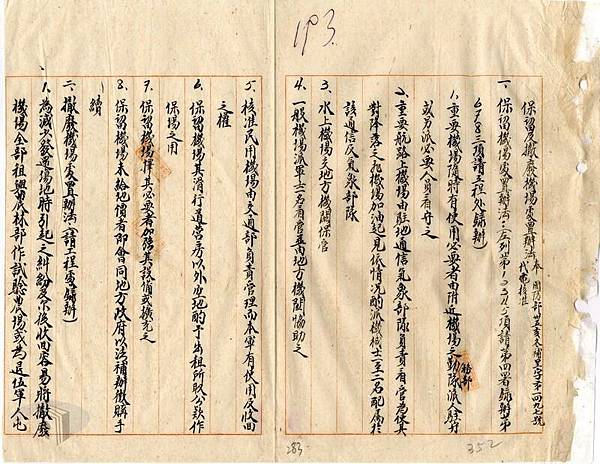 193.
保留及撤廢機場處置辦法 奉 國防部
代電核准
一、保留機場處置辦法:(左列第1 2 3 4 5項請第四署錄辦第
6 7 8三項請工程處錄辦)
1. 重要機場隨時有使用必要者由附近機場之勤務部隊派人修廿
或另派必要人員看守之
2. 重要航路上機場由駐地通信氣象部隊負責看管為使其
對降落之飛機場加油起見依情況酌派機械士一至二名配屬於
該通信及氣象部隊
3. 水上機場交地方機關保管
4. 一般機場派軍士一名看管並由地方機關協助之
5. 核准民用機場由交通部負責管理而本軍有使用及收回
之權
6. 保留機場其滑行道營房以外加地酌予出租所取公款作
保場之用
7. 保留機場擇其必要者加強其設備或擴充之
8. 保留機場未給地價者即會同地方政府以法補辦徵購手
續
二、撤廢機場處置辦法(請工程處錄辦)
1. 為減少發還場地時引起之糾紛及示後收回容易將撤廢
機場全部租與農林部作試驗農場或為退伍軍人屯
283
352